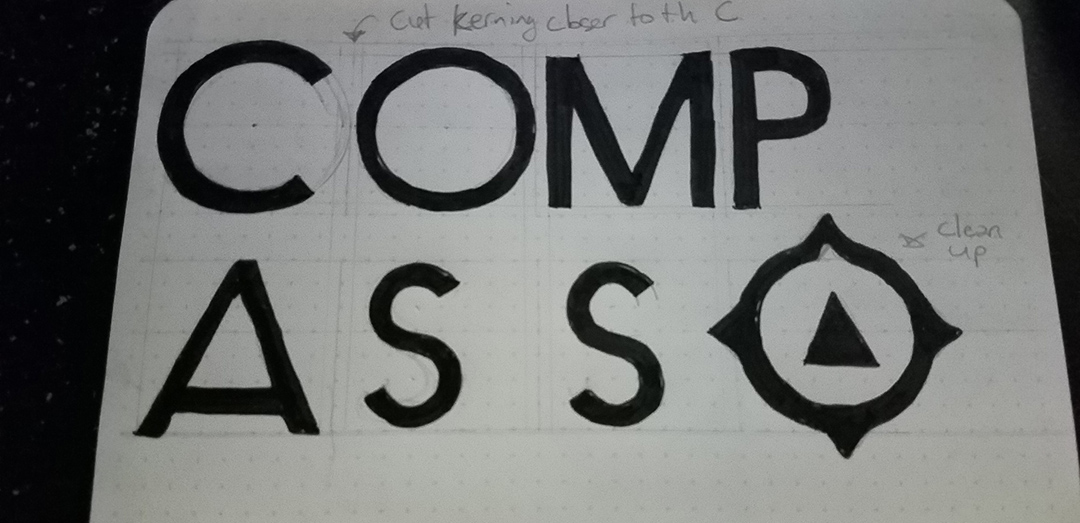 Cut kerning closer to th C
COMP
ASS
clean
up